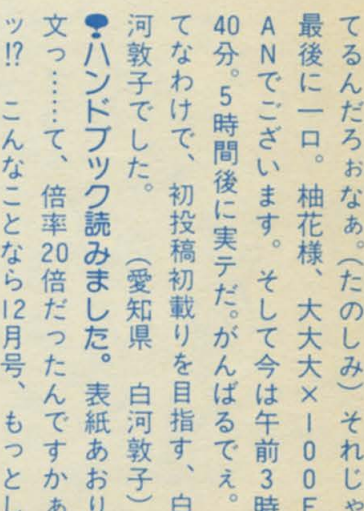 てるんだろぉなぁ。(たのしみ)それじゃ
最後に一口。柚花様、大大大×100F
ANでございます。そして今は午前3時
40分。5時間後に実テだ。がんばるでぇ。
てなわけで、初投稿初載りを目指す、白
河敦子でした。(愛知県 白河敦子)
●ハンドブック読みました。表紙あおり
文っ……て、倍率20倍だったんですかぁ
ッ!? こんなことなら12月号、もっとし